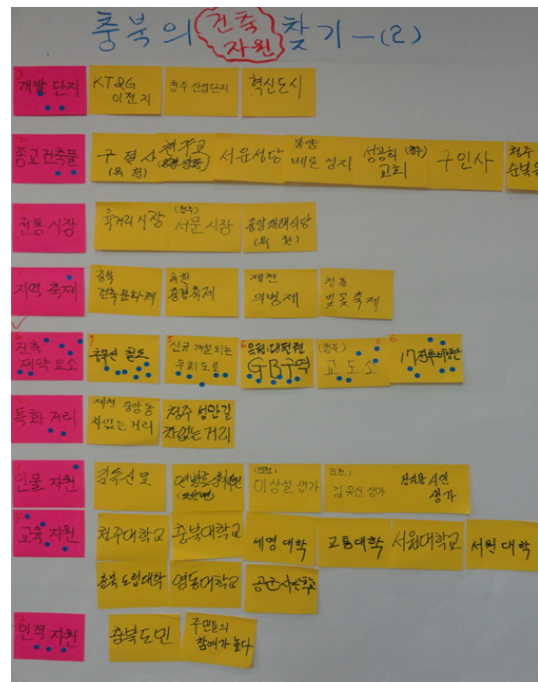 충북의 건축자원 찾기-(2)
개발 단지
KT&G
이전지
청주 산업단지
혁신도시
종교건축물
구절사
(옥천)
천주교
서운성당
배론 성지
성공회 (청주)
교회
구인사
청주
순복음
전통 시장
육거리 시장
(청주)
서문 시장
(옥천)
지역 축제
충북
건축문화제
옥천
제천
의병제
청풍
벚꽃축제
건축
제약요소
신규 개설되는
우회도로
GB구역
(청주)
교도소
17전투비행단
특화 거리
제천 중앙동
차없는 거리
청주 성안길
차없는 거리
인물 자원
이상설 생가
김유신 생가
생가
교육 자원
청주대학교
충북대학교
세명 대학
교통대학
서원대학교
서원 대학
충북도립대학
영동대학교
공군사관학교
인적 자원
충북도민
주민들의
참여가 높다